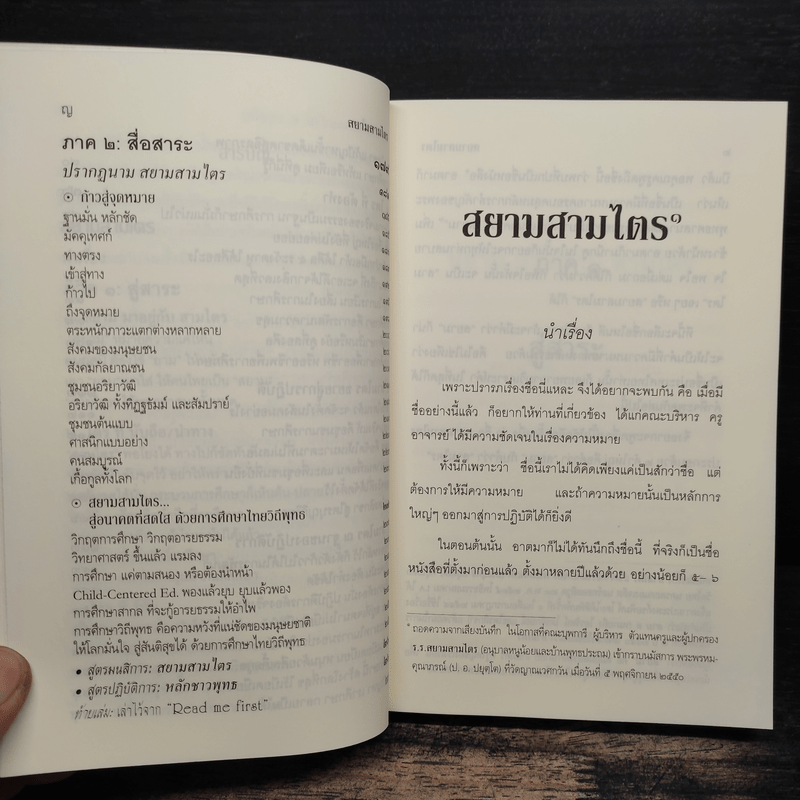 ญ
สยามสามไตร
ภาค ๒: สื่อสาระ
ปรากฏนาม สยามสามไตร
๏ ก้าวสู่จุดหมาย
ฐานมั่น หลักชัด
มัคคุเทศก์
ทางตรง
เข้าสู่ทาง
ก้าวไป
ถึงจุดหมาย
ตระหนักภาวะแตกต่างหลากหลาย
สังคมของมนุษยชน
สังคมกัลยาณชน
ชุมชนอริยาวัฒิ
อริยาวัฒิ ทั้งทิฏฐธัมม์ และสัมปราย์
ชุมชนต้นแบบ
ศาสนิกแบบอย่าง
คนสมบูรณ์
เกื้อกูลทั้งโลก
๏ สยามสามไตร...
สู่อนาคตที่สดใส ด้วยการศึกษาไทยวิถีพุทธ
วิกฤตการศึกษา วิกฤตอารยธรรม
วิทยาศาสตร์ ขึ้นแล้ว แรมลง
การศึกษา แค่ตามสนอง หรือต้องนำหน้า
Child-Centered Ed. พองแล้วยุบ ยุบแล้วพอง
การศึกษาสากล ที่จะกู้อารยธรรมให้อำไพ
การศึกษาวิถีพุทธ คือความหวังที่แน่ชัดของมนุษยชาติ
ให้โลกมั่นใจ สู่สันติสุขได้ ด้วยการศึกษาไทยวิถีพุทธ
• สูตรผนสิการ: สยามสามไตร
• สูตรปฏิบัติการ: หลักชาวพุทธ
ท้ายเล่ม: เล่าไว้จาก "Read me first"
สยามสามไตร๑
นำเรื่อง
เพราะปรารภเรื่องชื่อนี่แหละ จึงได้อยากจะพบกัน คือ เมื่อมี
ชื่ออย่างนี้แล้ว ก็อยากให้ท่านที่เกี่ยวข้อง ได้แก่คณะบริหาร ครู
อาจารย์ ได้มีความชัดเจนในเรื่องความหมาย
ทั้งนี้ก็เพราะว่า ชื่อนี้เราไม่ได้คิดเพียงแค่เป็นสักว่าชื่อ แต่
ต้องการให้มีความหมาย และถ้าความหมายนั้นเป็นหลักการ
ใหญ่ๆ ออกมาสู่การปฏิบัติได้ก็ยิ่งดี
ในตอนต้นนั้น อาตมาก็ไม่ได้ทันนึกถึงชื่อนี้ ที่จริงก็เป็นชื่อ
หนังสือที่ตั้งมาก่อนแล้ว ตั้งมาหลายปีแล้วด้วย อย่างน้อยก็ ๕– ๖
๑ ถอดความจากเสียงบันทึก ในโอกาสที่คณะบุพการี ผู้บริหาร ตัวแทนครูและผู้ปกครอง
ร.ร.สยามสามไตร (อนุบาลหนูน้อยและบ้านพุทธประถม) เข้ากราบนมัสการ พระพรหม-
คุณาภรณ์ (ป. อ. ปยุตฺโต) ที่วัดญาณเวศกวัน เมื่อวันที่ ๕ พฤศจิกายน ๒๕๕๐